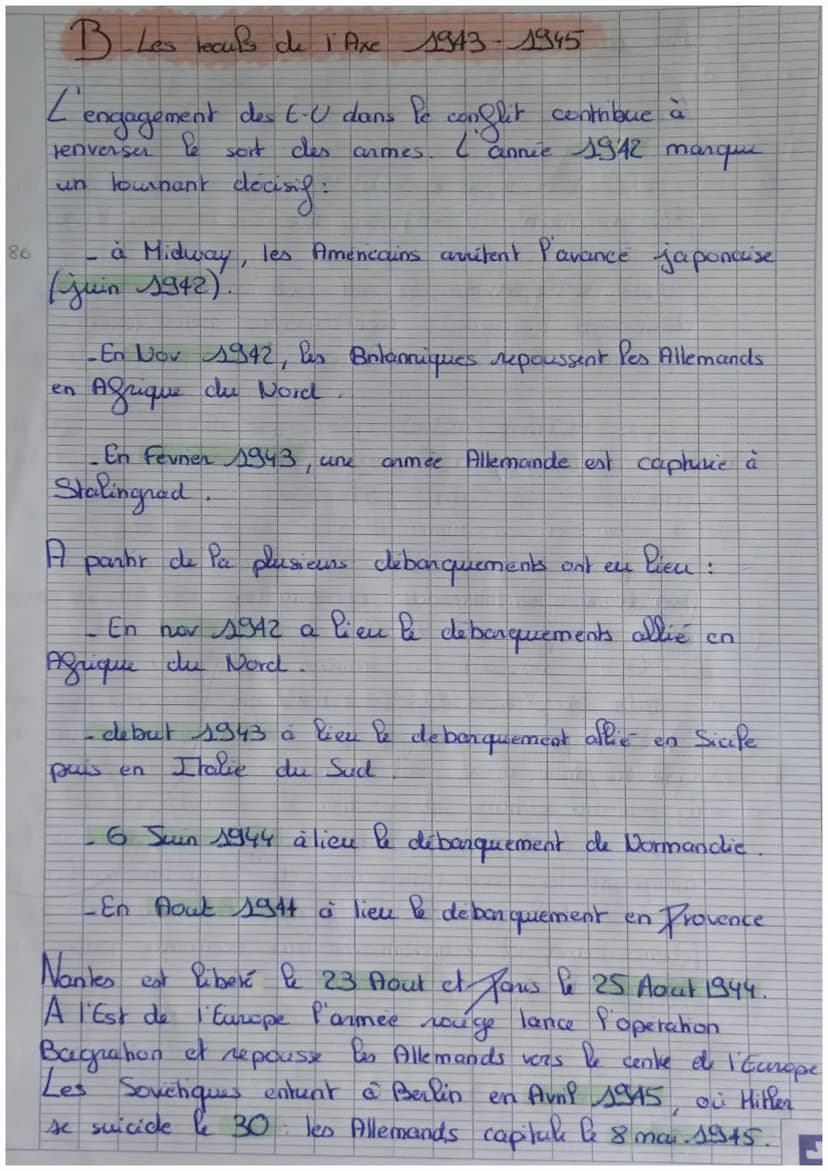 B - Les reculs de l'Axe 1943 - 1945
L'engagement des E-U dans le conflit contribue à
renverser le sort des armes. L'année 1942 marque
un tournant décisif :
86
- à Midway, les Américains arrêtent l'avancé japonaise
(juin 1942).
- En Nov 1942, les Britanniques repoussent les Allemands
en Afrique du Nord.
- En février 1943, une armée Allemande est capturée à
Stalingrad.
A partir de la plusieurs débarquements ont eu lieu :
- En nov 1942 a lieu le debarquements allié en
Afrique du Nord.
- debut 1943 à lieu le debarquement allié en Sicile
puis en Italie du Sud.
- 6 Juin 1944 à lieu le débarquement de Normandie.
- En Aout 1944 à lieu le débarquement en Provence
Nantes est libéré le 23 Aout et Paris le 25 Aout 1944.
A l'Est de l'Europe l'armée rouge lance l'opération
Bagration et repousse les Allemands vers le centre de l'Europe
Les Soviétiques entrent à Berlin en Avril 1945, où Hitler
se suicide le 30 : les Allemands capitule le 8 mai.1945.